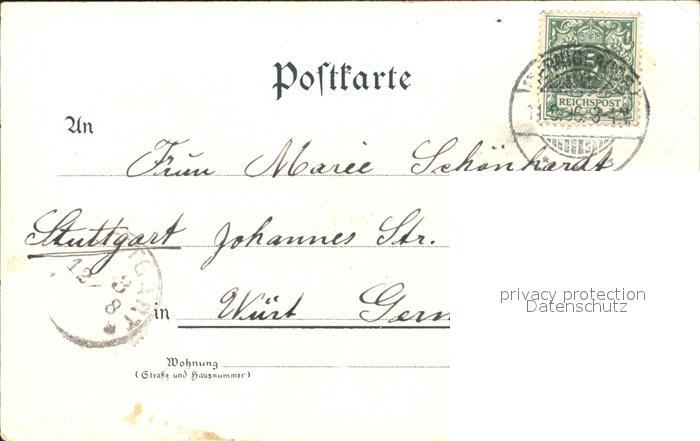 Postkarte
REICHSPOST
An
Frau Marie Schönhardt
Stuttgart Johannes Str.
in Würt Germ
Wohnung
(Straße und Hausnummer)
privacy protection
Datenschutz